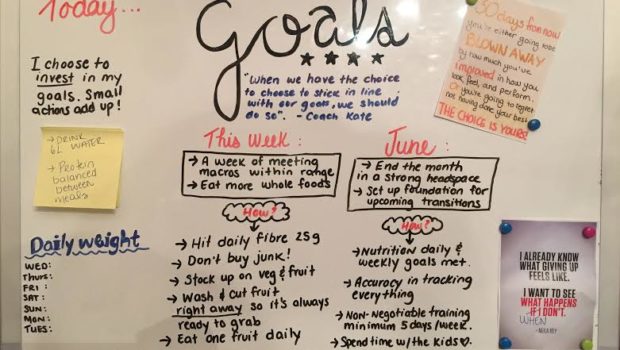 Today...
I choose to
invest in my
goals. Small
actions add up!
→ DRINK
6L WATER
→ Protein
balanced
between
meals
Daily weight
WED:
THURS:
FRI:
SAT:
SUN:
MON:
TUES:
Goals
"When we have the choice
to choose to stick in line
with our goals, we should
do so". - Coach Kate
This Week:
→ A week of meeting
macros within range
→ Eat more whole foods
How?
→ Hit daily fibre 25g
→ Don't buy junk!
→ Stock up on veg & fruit
→ Wash & Cut fruit
right away so it's always
ready to grab
→ Eat one fruit daily
June:
→ End the month
in a strong headspace
→ Set up foundation for
upcoming transitions
How?
→ Nutrition daily &
weekly goals met.
→ Accuracy in tracking
everything
→ Non-Negotiable training
minimum 5 days/week.
→ Spend time w/the Kids♡.
30 days from now
you're either going to be
BLOWN AWAY
by how much you've
improved in how you
look, feel, and perform.
Or you're going to regret
not having done your best.
THE CHOICE IS YOURS!
I ALREADY KNOW
WHAT GIVING UP
FEELS LIKE.
I WANT TO SEE
WHAT HAPPENS
IF I DON'T.
WHEN